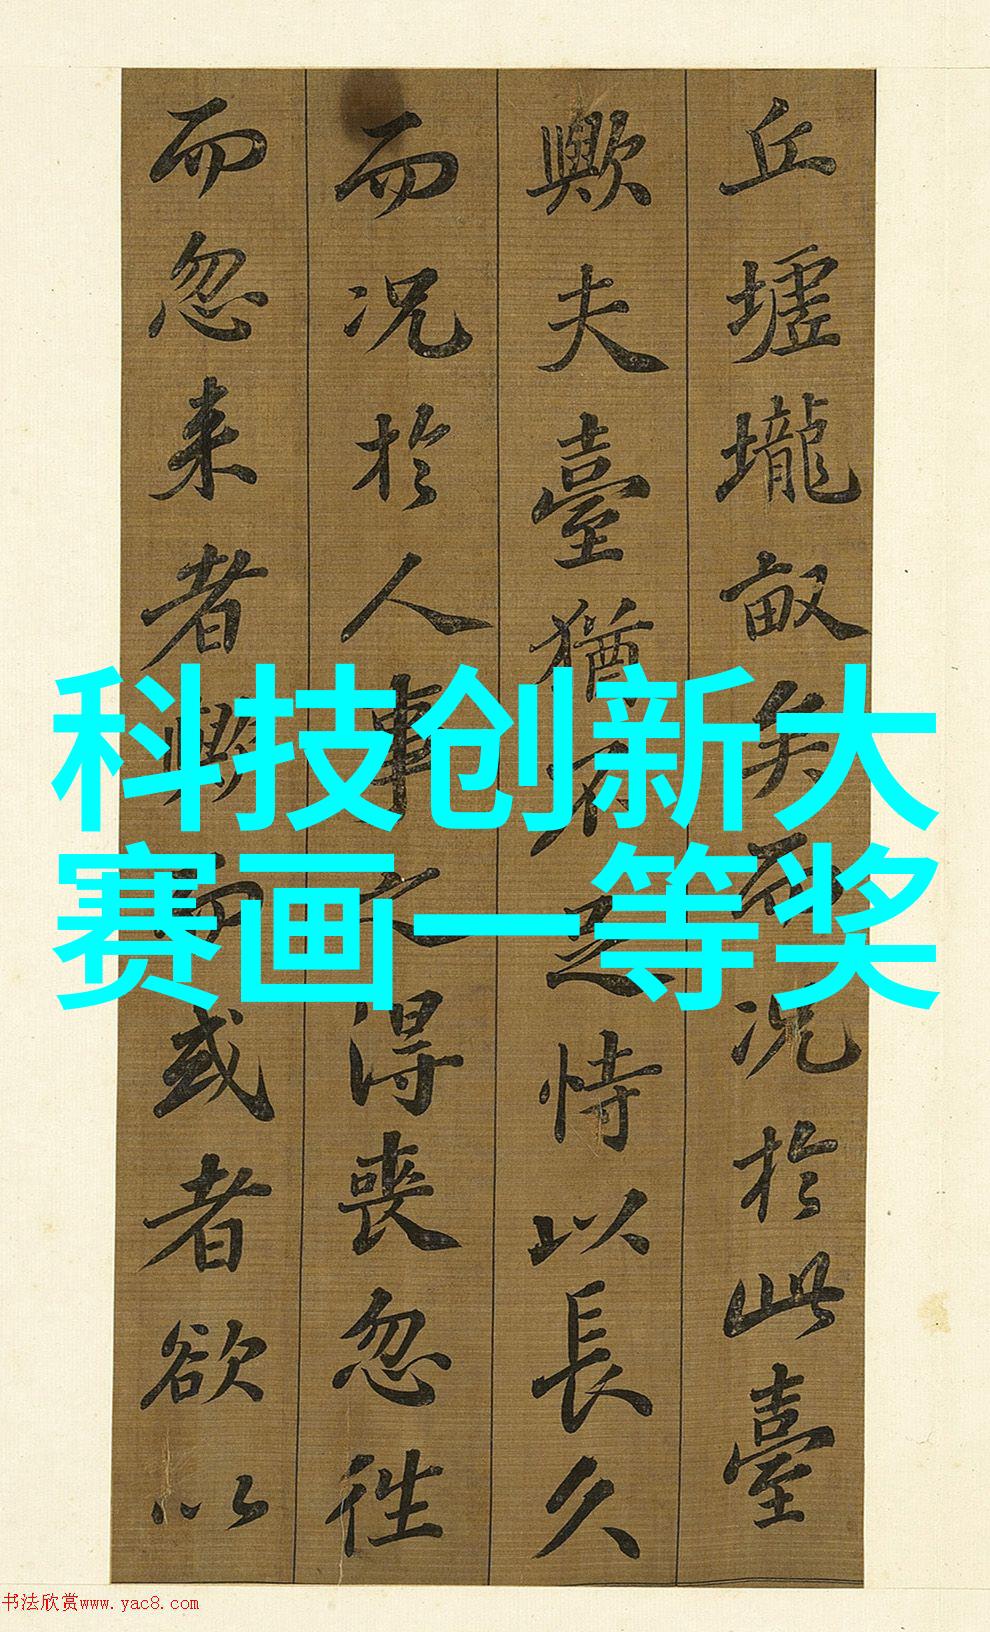 丘墟壠畝矣而况於此臺
歟夫臺猶不足恃以長久
而况於人事之得喪忽往
而忽来者歟而或者欲以
科技创新大
赛画一等奖
书法欣赏www.yac8.com